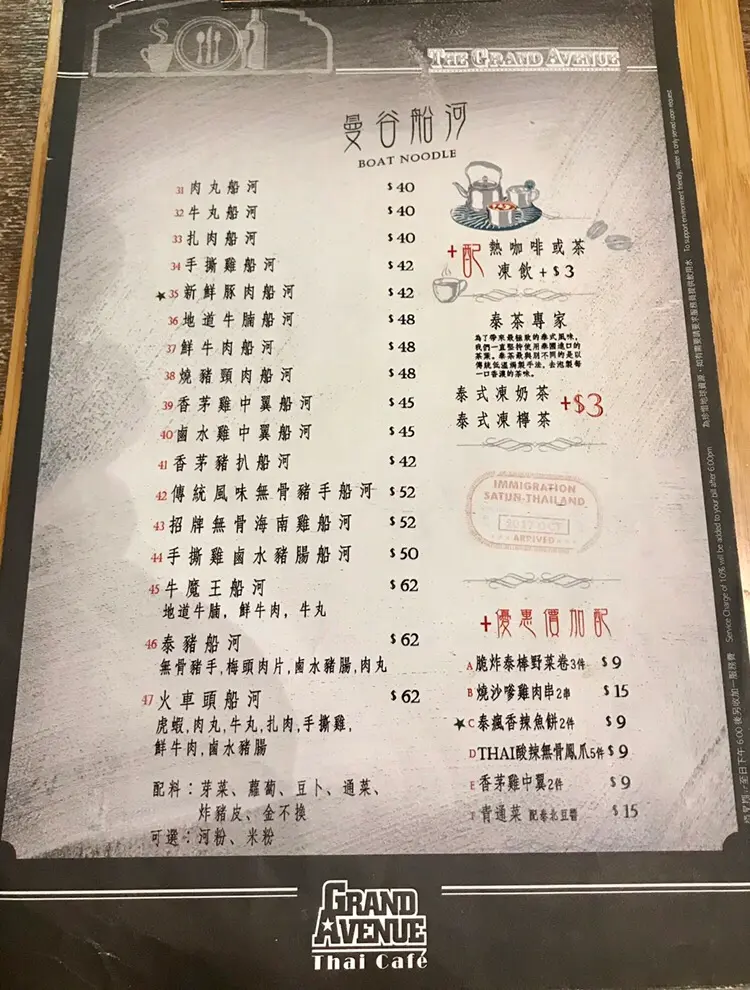 THE GRAND AVENUE
曼谷船河
BOAT NOODLE
31 肉丸船河 $40
32 牛丸船河 $40
33 扎肉船河 $40
34 手撕雞船河 $42
★35 新鮮豚肉船河 $42
36 地道牛腩船河 $48
37 鮮牛肉船河 $48
38 燒豬頸肉船河 $48
39 香茅雞中翼船河 $45
40 鹵水雞中翼船河 $45
41 香茅豬扒船河 $42
42 傳統風味無骨豬手船河 $52
43 招牌無骨海南雞船河 $52
44 手撕雞鹵水豬腸船河 $50
45 牛魔王船河 $62
地道牛腩, 鮮牛肉, 牛丸
46 泰豬船河 $62
無骨豬手,梅頭肉片,鹵水豬腸,肉丸
47 火車頭船河 $62
虎蝦,肉丸,牛丸,扎肉,手撕雞,
鮮牛肉,鹵水豬腸
配料：芽菜、蘿蔔、豆卜、通菜、
炸豬皮、金不換
可選：河粉、米粉
+配 熱咖啡或茶
凍飲+$3
泰茶專家
為了帶來最極致的泰式風味,
我們一直堅持使用泰國進口的
茶葉。泰茶最與別不同的是以
傳統低溫焗製手法,去泡製每
一口香濃的茶味。
泰式凍奶茶
泰式凍檸茶
+$3
IMMIGRATION
SATUN-THAILAND
2017 OCT
ARRIVED
+優惠價加配
A 脆炸泰棒野菜卷3件 $9
B 燒沙嗲雞肉串2串 $15
★C 泰瘋香辣魚餅2件 $9
D THAI酸辣無骨鳳爪5件 $9
E 香茅雞中翼2件 $9
青通菜 配泰北豆醬 $15
為珍惜地球資源，如有需要請要求服務員提供飲用水 To support environment friendly, water is only served upon request
至日下午 6:00 後另收加一服務費 Service Charge of 10% will be added to your bill after 6:00pm
GRAND
AVENUE
Thai Café